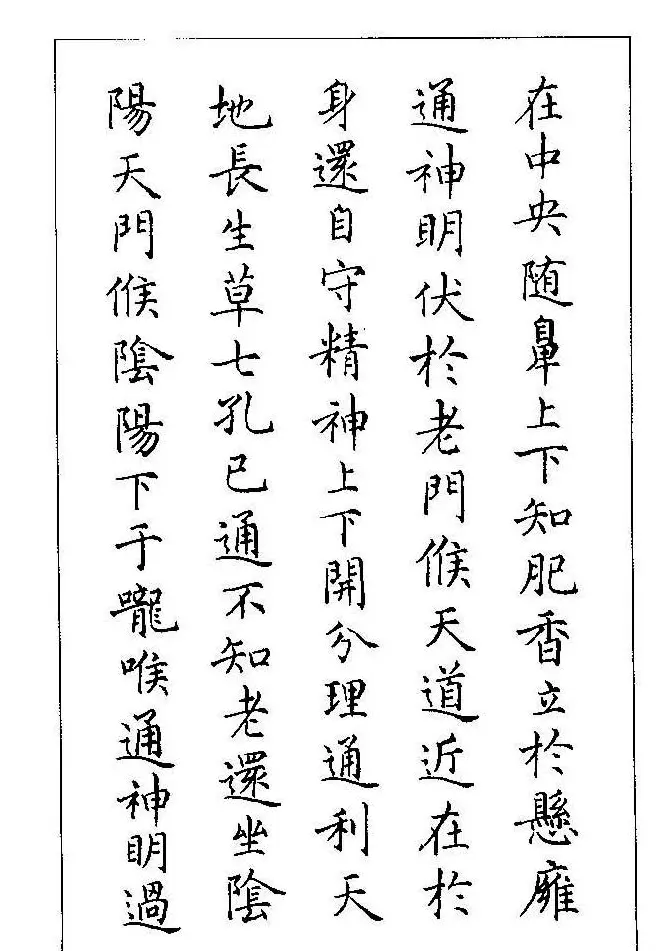 在中央随鼻上下知肥香立於懸雍
通神明伏於老門候天道近在於
身還自守精神上下開分理通利天
地長生草七孔已通不知老還坐陰
陽天門候陰陽下于嚨喉通神明過